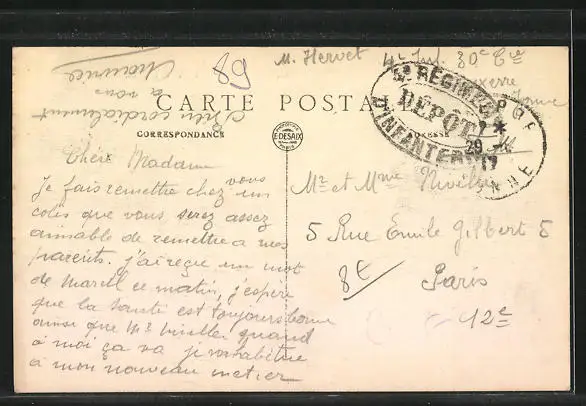 89
M. Hervet 4e Inf. 30e Cie
Auxerre
Yonne
CARTE POSTALE
CORRESPONDANCE
ADRESSE
EDITION
E. DESAIX
PARIS
4e RÉGIMENT
DÉPÔT
D'INFANTERIE
29
Chère Madame
Je fais remettre chez vous un
colis que vous serez assez
aimable de remettre a mes
parents. j'ai reçue un mot
de Marcel ce matin, j'espère
que la santé est toujours bonne
ainsi que Mr Nivelle, quand
à moi ça va je m'habitue
à mon nouveau metier
Bien cordialement
a vous
Maurice
Mr et Mme Nivelle
5 Rue Émile Gilbert 5
Paris
12e